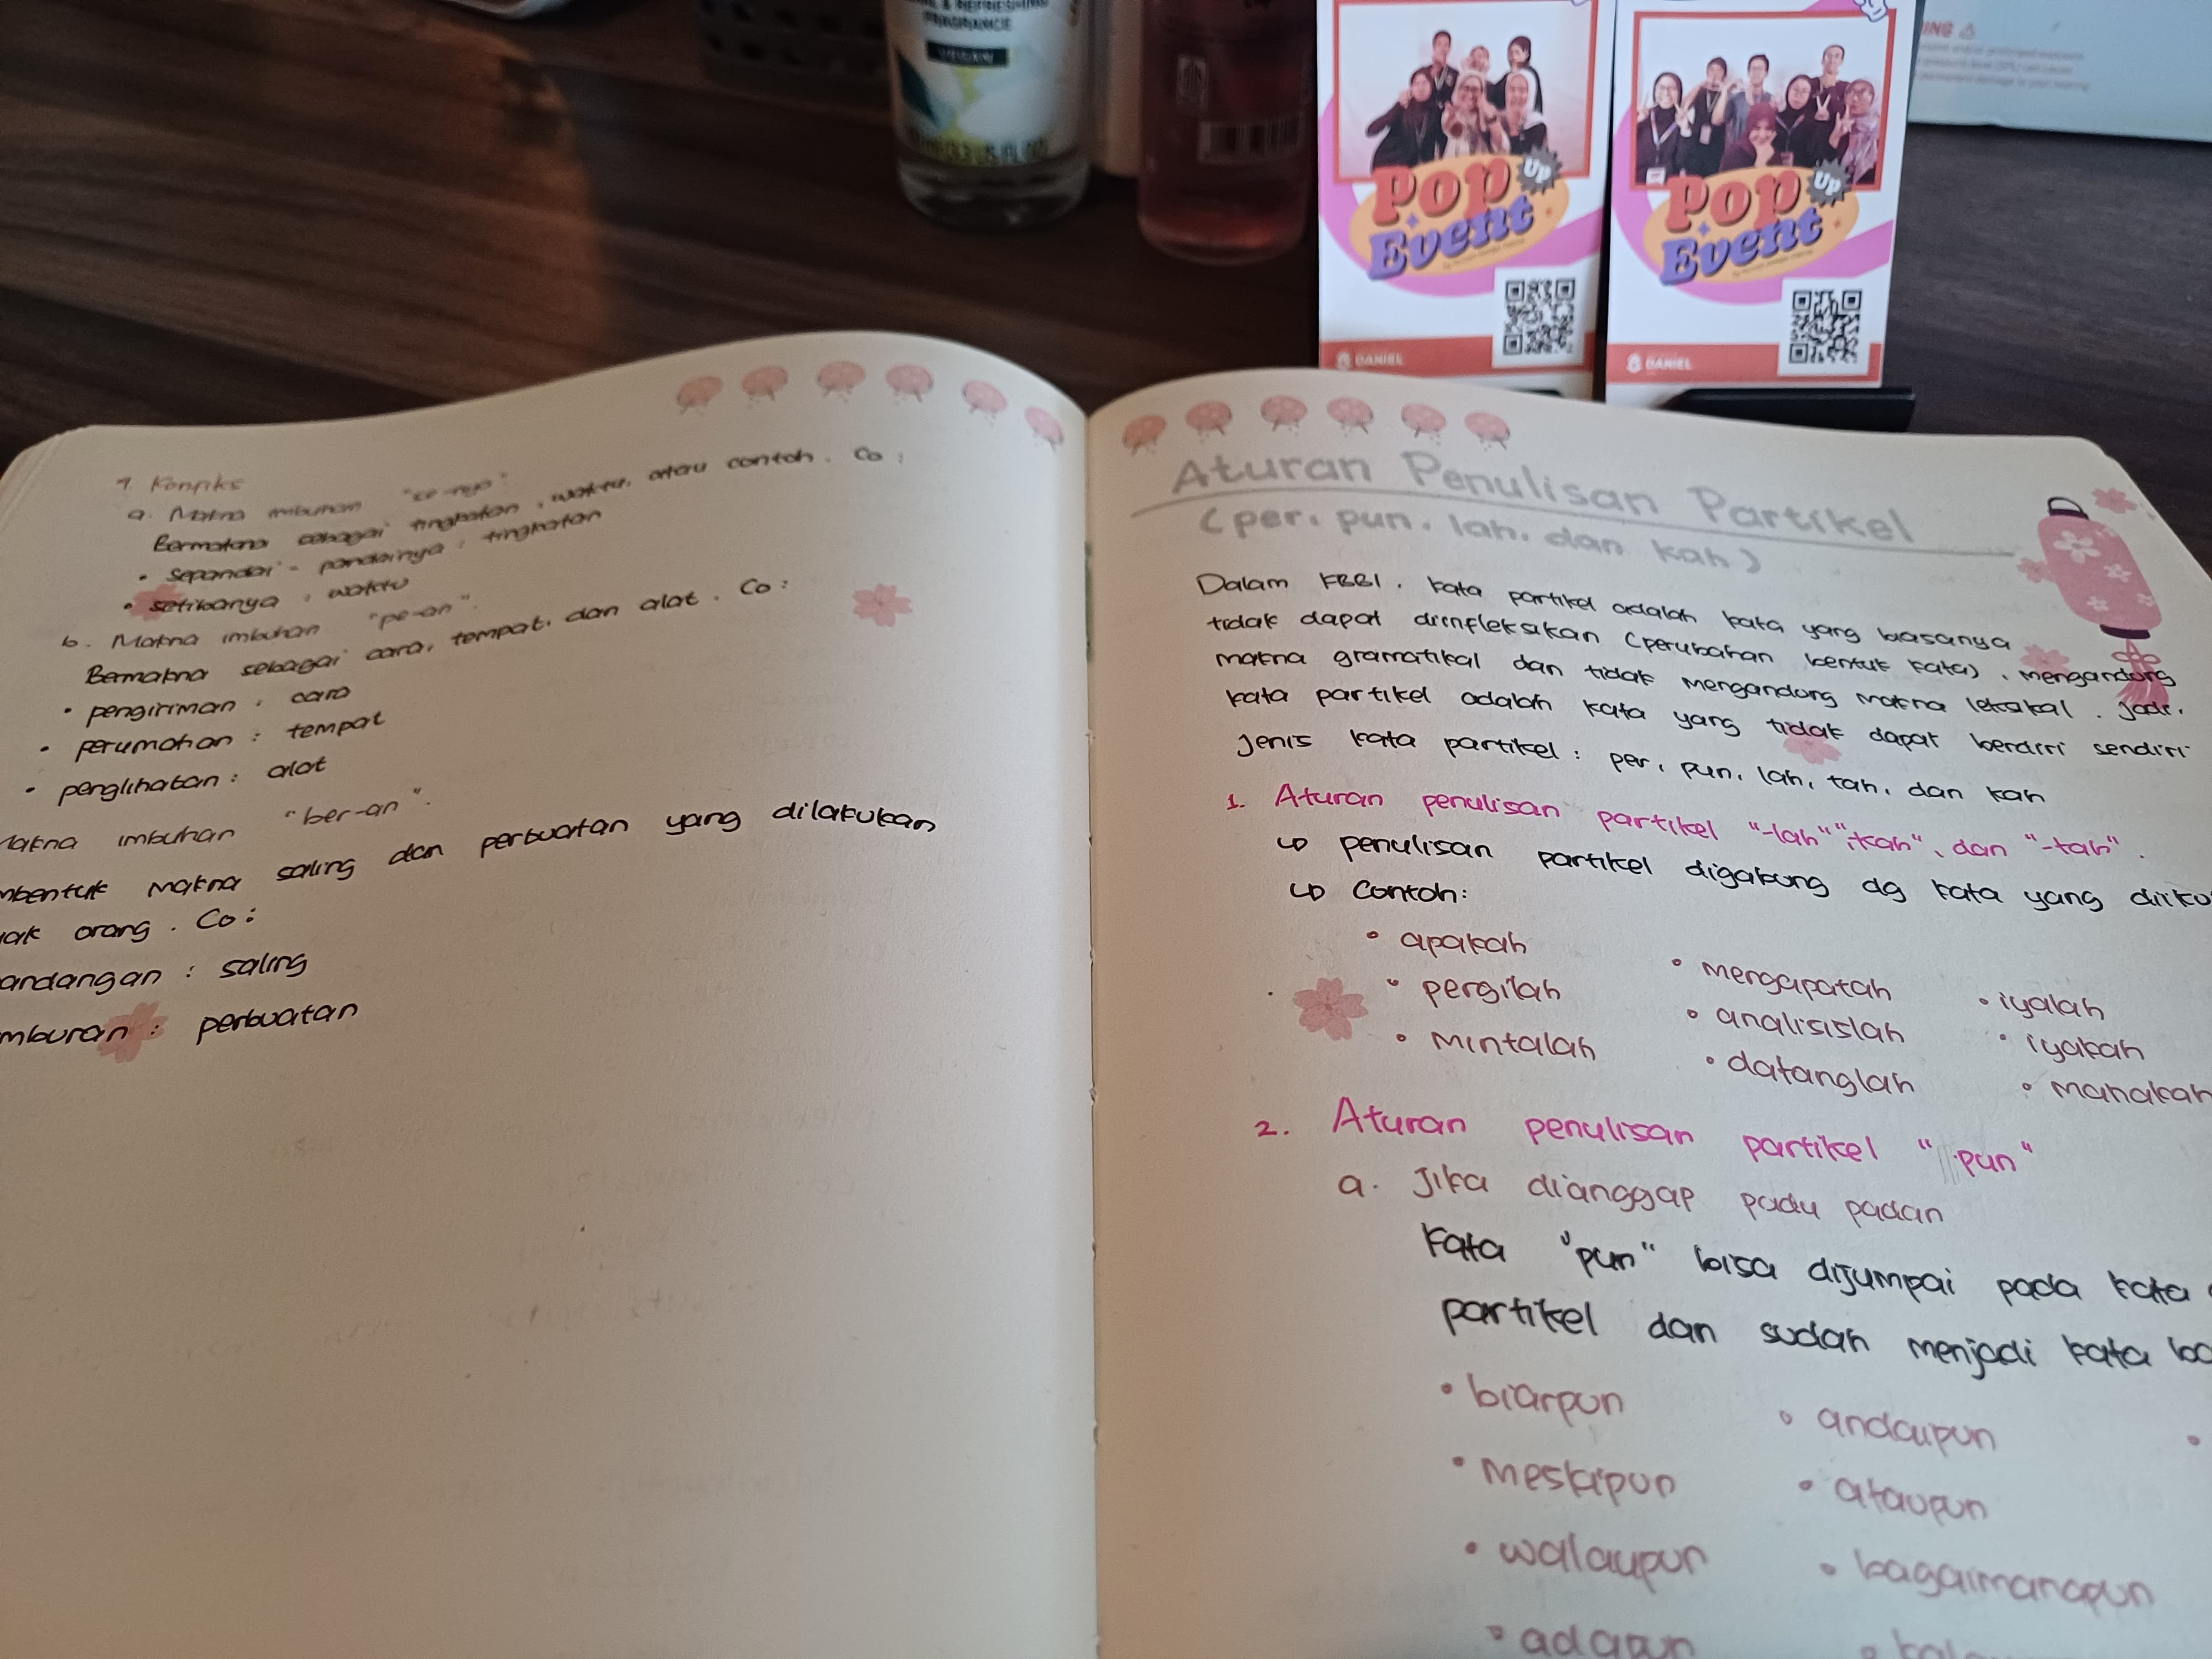 & REFRESHING
FRAGRANCE
VEGAN
Pop
Up
Event
DANIEL
Pop
Up
Event
DANIEL
a. Makna imbuhan "se-nya".
Bermakna sebagai tingkatan, waktu, atau contoh. Co :
• sepandai-pandainya : tingkatan
• setibanya : waktu
b. Makna imbuhan "pe-an".
Bermakna sebagai cara, tempat, dan alat. Co :
• pengiriman : cara
• perumahan : tempat
• penglihatan : alat
Makna imbuhan "ber-an".
mbentuk makna saling dan perbuatan yang dilakukan
orang. Co :
andangan : saling
mburan : perbuatan
Aturan Penulisan Partikel
(per, pun, lah, dan kah)
Dalam KBBI, kata partikel adalah kata yang biasanya
tidak dapat diinfleksikan (perubahan bentuk kata), mengandung
makna gramatikal dan tidak mengandung makna leksikal. Jadi,
kata partikel adalah kata yang tidak dapat berdiri sendiri
Jenis kata partikel : per, pun, lah, tah, dan kah
1. Aturan penulisan partikel "-lah", "-kah", dan "-tah".
↳ penulisan partikel digabung dg kata yang diiku
↳ Contoh:
• apakah
• mengapatah
• iyalah
• pergilah
• analisislah
• iyakah
• mintalah
• datanglah
• manakah
2. Aturan penulisan partikel "pun"
a. Jika dianggap padu padan
Kata "pun" bisa dijumpai pada kata
partikel dan sudah menjadi kata
• biarpun
• andaipun
• meskipun
• ataupun
• walaupun
• bagaimanapun
• adapun